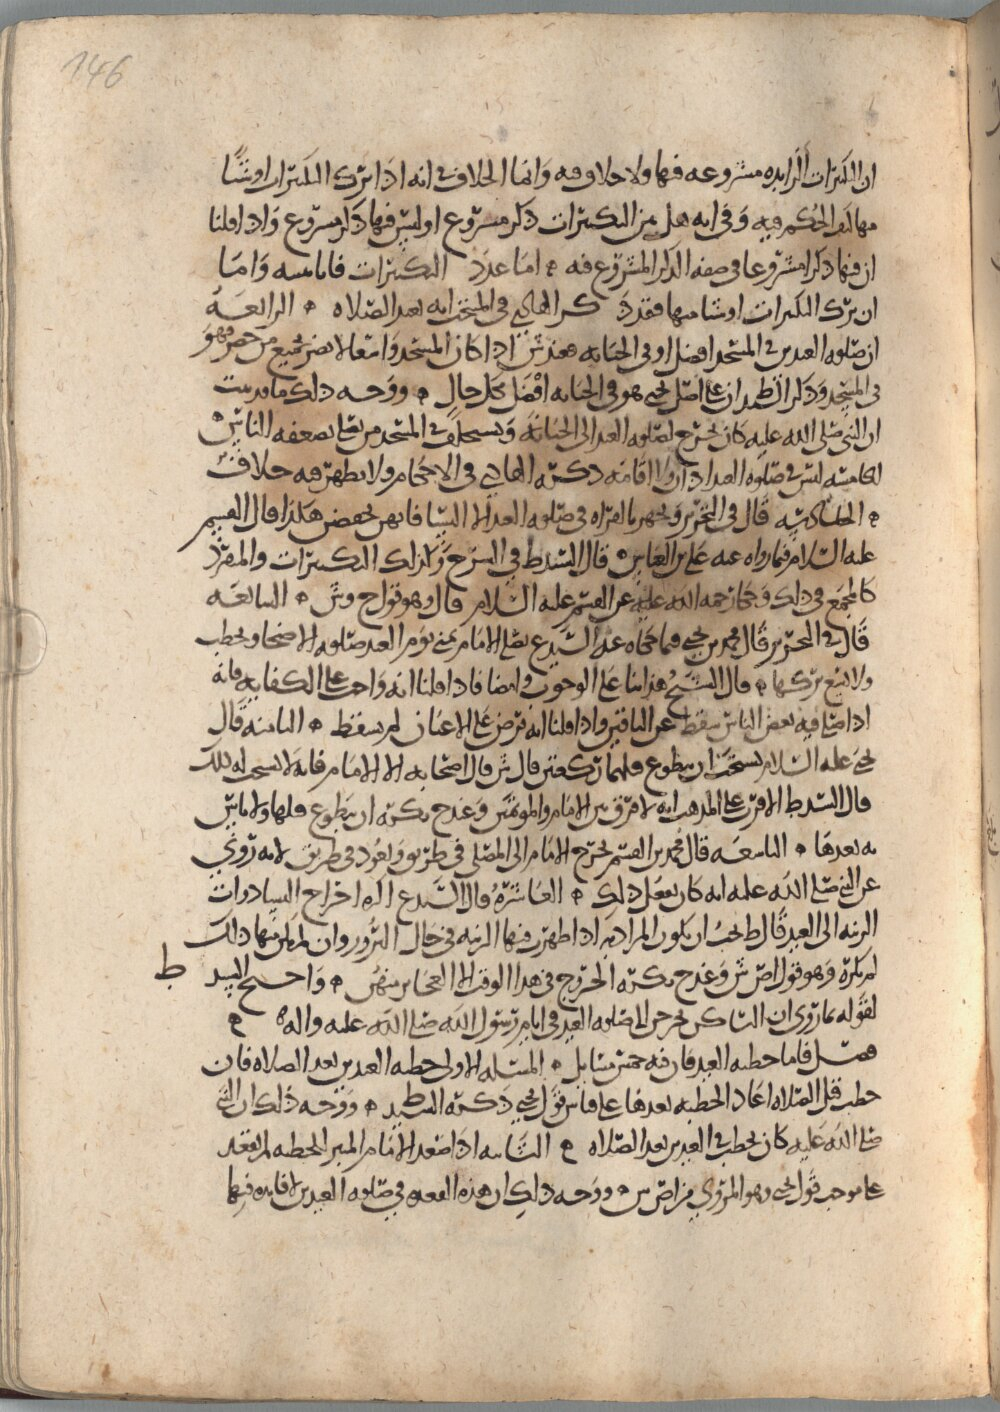 146
ان التكبيرات الزايده مشروعه فيها ولا خلاف فيه وانما الخلاف في انه اذا ترك التكبيرات او شيا
منها كيف الحكم فيه وفي انه هل بين التكبيرات ذكر مشروع او ليس فيها ذكر مشروع واذا قلنا
ان فيها ذكرا مشروعا في صفه الذكر المشروع فيه اما عدد التكبيرات وامـا
ان ترك التكبيرات او شيا منها فقد ذكر الهادي في المنتخب انه يعيد الصلاه الرابعـه
ان صلوه العيدين في المسجد افضل او في الجبانه فعند ش اذا كان المسجد واسعا لا يضر بجميع من حضر فهو
في المسجد وذكر ان على اصل يحيى هو في الجبانه افضل بكل حال ووجـه ذلك ما قد ثبت
ان النبي صلى الله عليه كان يخرج لصلوه العيد الى الجبانه ويستخلف في المسجد من يصلي بضعفه الناس
الخامسه ليس في صلوه العيد اذان ولا اقامه ذكره الهادي في الاحكام ولا يظهر فيه خلاف
قال في التحرير ويجهر بالقراه في صلوه العيد الا النسا فانهن يخفضن هكذا قال القسم
عليه السلام فيما رواه عنه علي بن العباس قال السيد ط في الشرح وكذلك التكبيرات والمنفرد
كالمجمع في ذلك وحكا رحمه الله عليه عن القسم عليه السلام قال وهو قول ح وش السابعـه
قال في التحرير قال محمد بن يحيى فيما حكاه عنه السيد ع يصلي الامام بمنى يوم العيد صلوه الاضحا ويخطب
ولا ينبغي تركها قال الشيخ هذا بنا على الوجوب وايضا فاذا قلنا انه واجب على الكفايه فانه
اذا صلى فيه بعض الناس سقط عن الباقين واذا قلنا انه فرض على الاعيان لم يسقط الثامنه قـال
يحيى عليه السلام يستحب ان يتطوع قبلهما بركعتين قال ش قال اصحابه الا الامام فانه لا يستحب له ذلك
قال السيد ط الاقرب على المذهب انه لا فرق بين الامام والموتمين وعند ح يكره ان يتطوع قبلها ولا باس
به بعدها التاسعـه قال محمد بن القسم يخرج الامام الى المصلى في طريق ويعود في طريق لانه روي
عن النبي صلى الله عليه انه كان يفعل ذلك العاشره قال السيد ع اكره اخراج النسا ذوات
الزينه الى العيد قال ط يجب ان يكون المراد به اذا ظهرن فيها الزينه في حال البروز وان لم يكن فيها ذلك
لم يكره وهو قول اص ش وعند ح يكره الخروج في هذا الوقت الا العجايز منهن واحـتج السيد ط
لقوله بما روي ان النسا كن يخرجن الى صلوه العيد في ايام رسول الله صلى الله عليه واله
فصـل فاما خطبه العيد فان فيه خمس مسايل المسله الاولى خطبه العيدين بعد الصلاه فان
خطب قبل الصلاه اعاد الخطبه بعدها على قياس قول يحيى ذكره السيد ط ووجه ذلك ان النبي
صلى الله عليه كان يخطب في العيدين بعد الصلاه الثانيه اذا صعد الامام المنبر للخطبه لم يقعد
على موجب قول يحيى وهو المروي من اص ش ووجه ذلك ان هذه القعده في صلوه العيدين لا فايده فيها